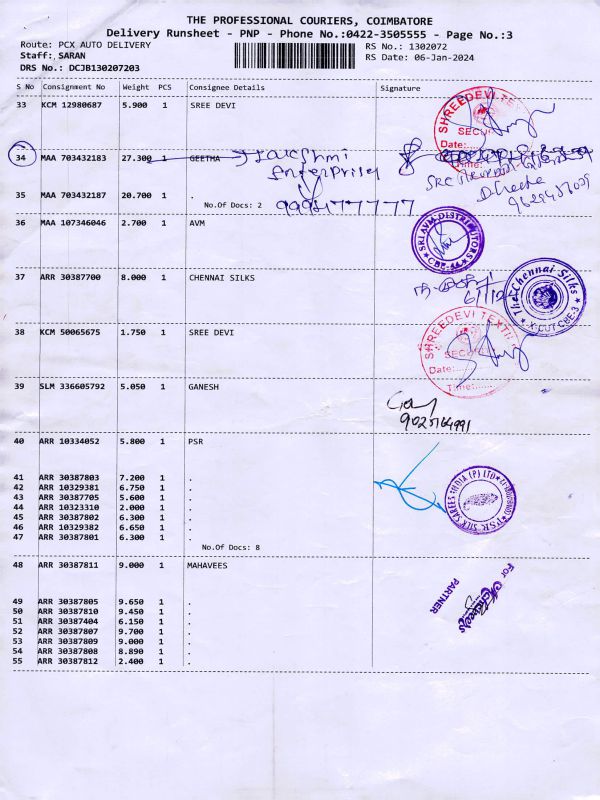 THE PROFESSIONAL COURIERS, COIMBATORE
Delivery Runsheet - PNP - Phone No.:0422-3505555 - Page No.:3
Route: PCX AUTO DELIVERY RS No.: 1302072
Staff: SARAN RS Date: 06-Jan-2024
DRS No.: DCJB130207203
S No Consignment No Weight PCS Consignee Details Signature
33 KCM 12980687 5.900 1 SREE DEVI
SHREEDEVI TEXTI
SECU
Date:
34 MAA 703432183 27.300 1 GEETHA Lakshmi
Enterprises
Dheeha
35 MAA 703432187 20.700 1 .
No.Of Docs: 2
36 MAA 107346046 2.700 1 AVM
SRI AVM DISTRIBUTORS
CBE-44
37 ARR 30387700 8.000 1 CHENNAI SILKS
6/1/12
The Chennai Silks
X-CUT CBE-3
38 KCM 50065675 1.750 1 SREE DEVI
SHREEDEVI TEXTIL
SECURI
Date:......
Time:......
39 SLM 336605792 5.050 1 GANESH
40 ARR 10334052 5.800 1 PSR
PSR SILK SAREES INDIA (P) LTD
41 ARR 30387803 7.200 1 .
42 ARR 10329381 6.750 1 .
43 ARR 30387705 5.600 1 .
44 ARR 10323310 2.000 1 .
45 ARR 30387802 6.300 1 .
46 ARR 10329382 6.650 1 .
47 ARR 30387801 6.300 1 .
No.Of Docs: 8
48 ARR 30387811 9.000 1 MAHAVEES
For
PARTNER
49 ARR 30387805 9.650 1 .
50 ARR 30387810 9.450 1 .
51 ARR 30387404 6.150 1 .
52 ARR 30387807 9.700 1 .
53 ARR 30387809 9.000 1 .
54 ARR 30387808 8.890 1 .
55 ARR 30387812 2.400 1 .